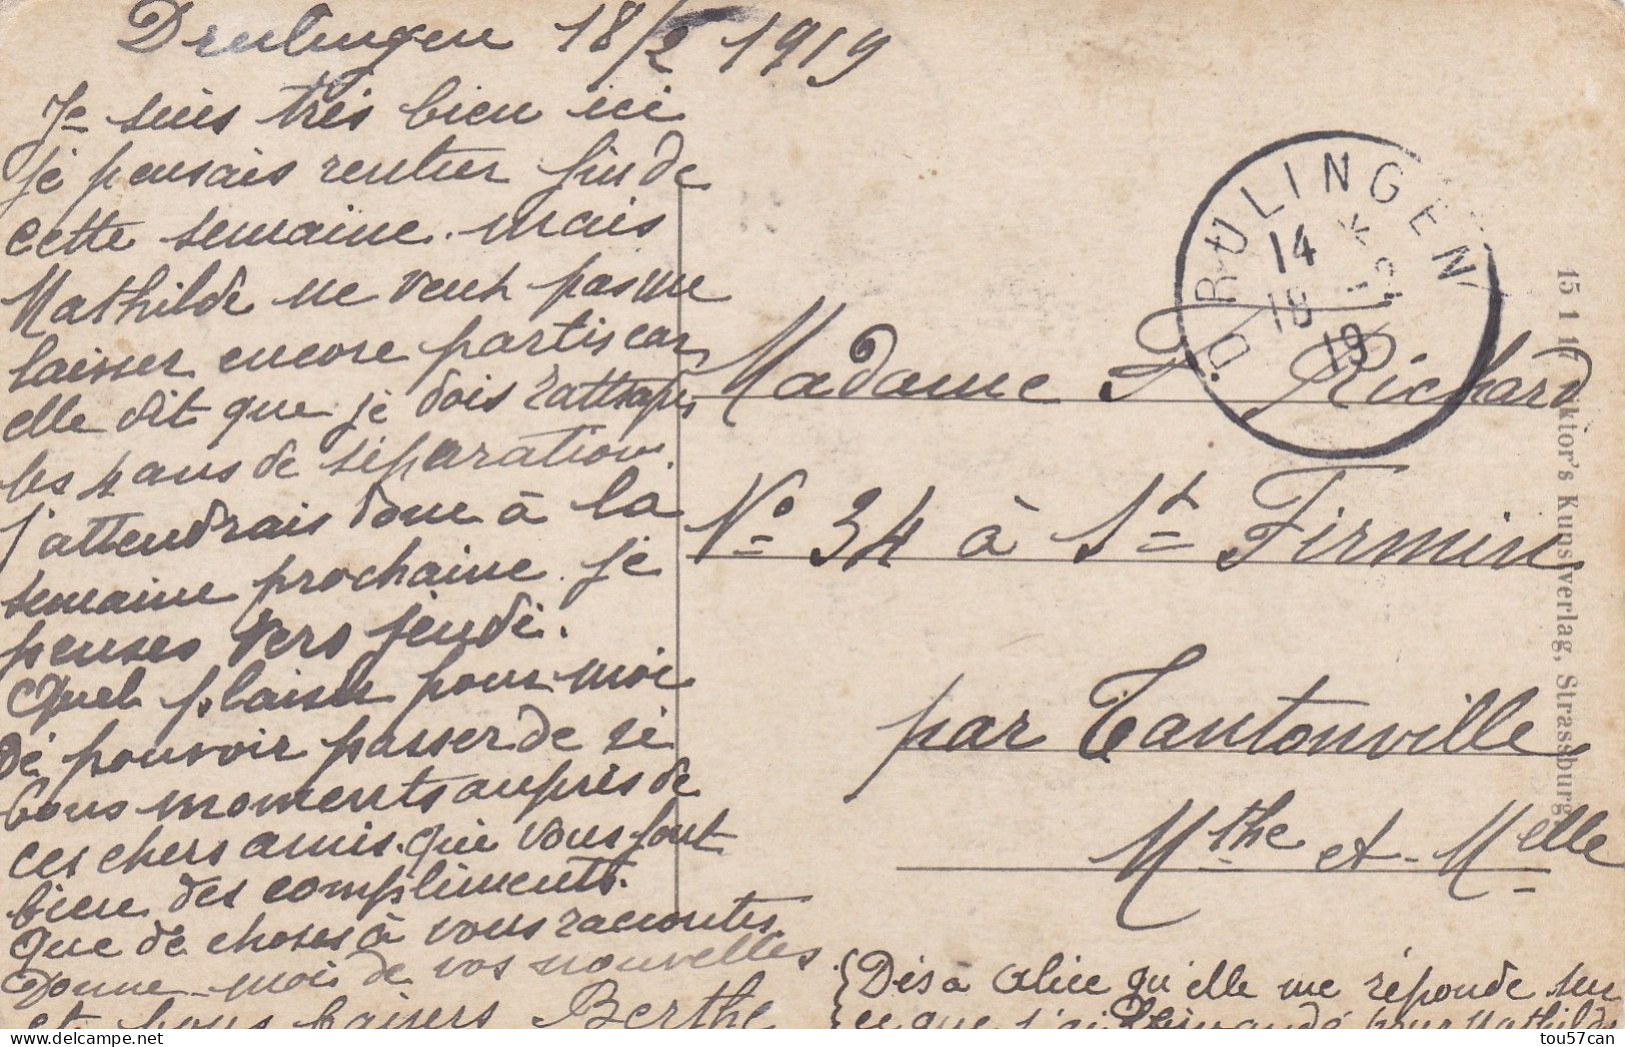 Drulingen 18/2 1919
Je suis très bien ici
je pensais rentrer fin de
cette semaine. mais
Mathilde ne veut pas me
laisser encore partis car,
elle dit que je dois rattraper
les 4 ans de séparation.
J'attendrais donc à la
semaine prochaine. je
penses vers jeudi.
Quel plaisir pour moi
de pouvoir passer de si
bons moments auprès de
ces chers amis. qui vous font
bien des compliments.
Que de choses à vous raconter.
Donne-moi de vos nouvelles
et bons baisers Berthe
DRULINGEN
14
18 2 19
Madame Richard
No 34 à St Firmin
par Tantonville
Mthe et Mselle
Dis à Alice qu'elle me réponde sur
ce que j'ai demandé pour Mathilde
15 1 17
Kunstverlag, Strassburg
tou57can